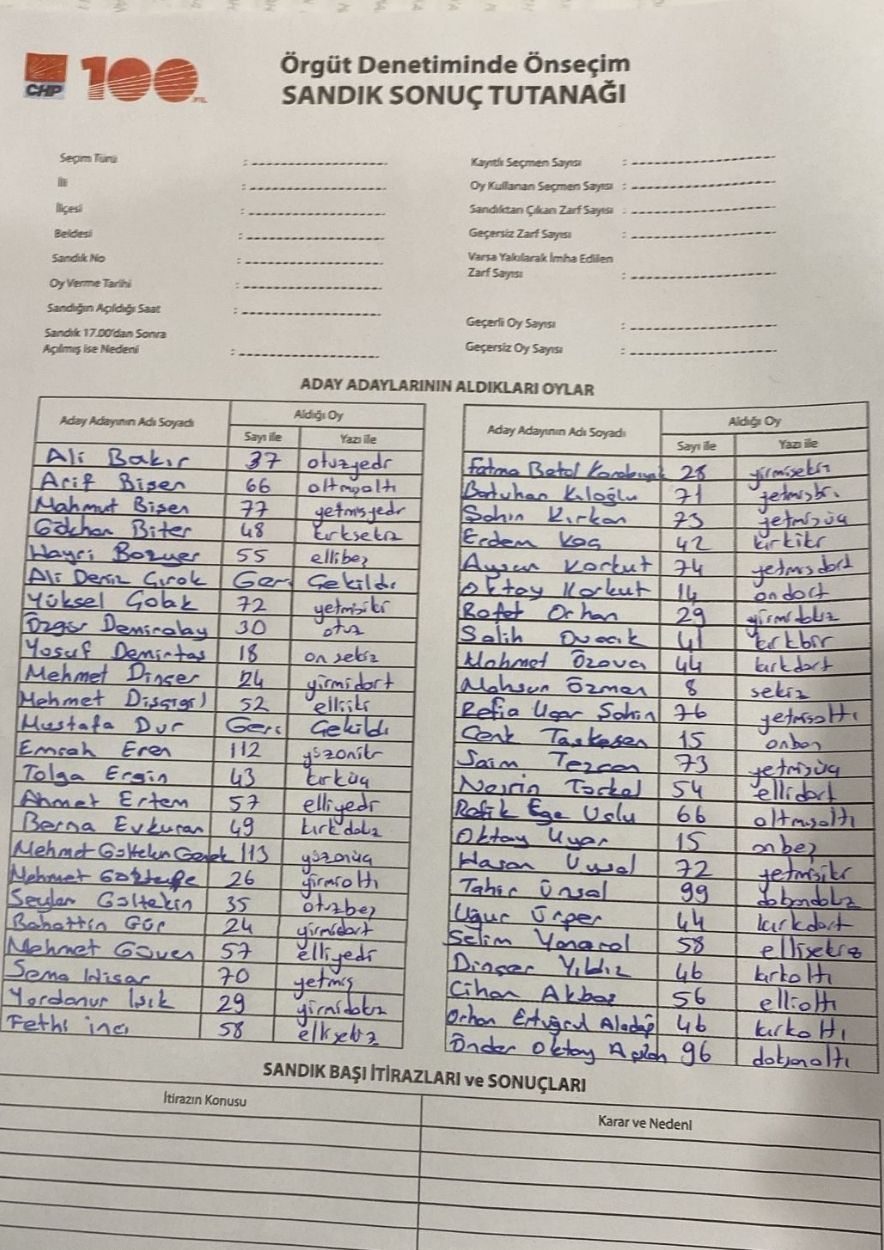 CHP 100 YIL
Örgüt Denetiminde Önseçim
SANDIK SONUÇ TUTANAĞI
Seçim Türü :
İli :
İlçesi :
Beldesi :
Sandık No :
Oy Verme Tarihi :
Sandığın Açıldığı Saat :
Sandık 17.00'dan Sonra
Açılmış ise Nedeni :
Kayıtlı Seçmen Sayısı :
Oy Kullanan Seçmen Sayısı :
Sandıktan Çıkan Zarf Sayısı :
Geçersiz Zarf Sayısı :
Varsa Yakılarak İmha Edilen
Zarf Sayısı :
Geçerli Oy Sayısı :
Geçersiz Oy Sayısı :
ADAY ADAYLARININ ALDIKLARI OYLAR
Aday Adayının Adı Soyadı Aldığı Oy
Sayı ile Yazı ile
Ali Bakır 37 otuzyedi
Arif Bisen 66 altmışaltı
Mahmut Bisen 77 yetmişyedi
Gökhan Biter 48 kırksekiz
Hayri Bozuer 55 ellibeş
Ali Deniz Çırak Geri Çekildi
Yüksel Çolak 72 yetmişiki
Özgür Demiralay 30 otuz
Yusuf Demirtaş 18 onsekiz
Mehmet Dinçer 24 yirmidört
Mehmet 52 elliiki
Mustafa Dur Geri Çekildi
Emrah Eren 112 yüzoniki
Tolga Ergin 43 kırküç
Ahmet Ertem 57 elliyedi
Berna Evkuran 49 kırkdokuz
Mehmet Gültekin 113 yüzonüç
Mehmet Göktepe 26 yirmialtı
Seylan Gültekin 35 otuzbeş
Bahattin Gür 24 yirmidört
Mehmet Güven 57 elliyedi
Sema Hisar 70 yetmiş
Yordanur Işık 29 yirmidokuz
Fethi İnci 58 ellisekiz
Aday Adayının Adı Soyadı Aldığı Oy
Sayı ile Yazı ile
Fatma Betül 28 yirmisekiz
Batuhan Kıloğlu 71 yetmişbir
Şahin Kırkan 73 yetmişüç
Erdem Koç 42 kırkiki
Aysan Korkut 74 yetmişdört
Oktay Korkut 14 ondört
Rafet Orhan 29 yirmidokuz
Salih 41 kırkbir
Mehmet Özova 44 kırkdört
Mahsun Özmen 8 sekiz
Refia Uçar Şahin 76 yetmişaltı
Cenk Taşkesen 15 onbeş
Saim Tezcan 73 yetmişüç
Nesrin Törkel 54 ellidört
Refik Ege Uslu 66 altmışaltı
Oktay Uyar 15 onbeş
Hasan Uysal 72 yetmişiki
Tahir Ünsal 99 doksandokuz
Uğur Ürper 44 kırkdört
Selim Yanarol 58 ellisekiz
Dinçer Yıldız 46 kırkaltı
Cihan Akbaş 56 ellialtı
Orhan Ertuğrul Aladağ 46 kırkaltı
Önder Oktay 96 doksanaltı
SANDIK BAŞI İTİRAZLARI ve SONUÇLARI
İtirazın Konusu Karar ve Nedeni